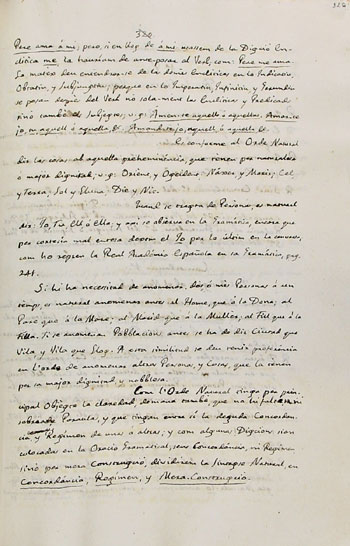 324
Pere ama á mi; pero, si en lloc de á mi usássem de la Dicció En-
clitica me la hauriam de anteposar al Verb, com: Pere me ama.
La mateix deu entendrerse de las demes Encliticas en lo Indicatiu,
Optatiu, y Subjunctiu; perque en lo Imperatiu, Infinitiu y Gerundi
se posan despus del Verb no sola-ment las Encliticas y Predicads
sino també los Subjectes; v.g. Amen-se aquells ó aquellas, Amar-se
jo, tu, aquell ó aquella, &. Amandme jo, aquell, ó aquella &.
Es conforme al Orde Natural
dir las cosas ab aquella preheminencia, que tenen per naturalesa
ó major dignitat; v.g. Orient, y Occident; Naxer y Morir; Cel
y Terra; Sol y Lluna; Dia y Nit.
Quant se tracta de Persona, es natural
dir: Jo, Tu, Ell, ó Ella; y axí se observa en la Gramática, encara que
per cortesia mal entesa deperm el Jo per lo últim en la conversa,
com ho repren la Real Académia Española en sa Gramática, pag.
241.
Si hi ha necessitat de anomenar, dos ó més Personas á un
temps, es natural anomenar antes al Home, que á la Dona; al
Pare que á la Mare; al Marid que á la Mullér; al Fill que á la
Filla. Si se anomena Pobblación antes se ha de dir Ciutat que
Vila, y Vila que Lloc. A esta similitud se deu tenir preferéncia
en l'orde de anomenar altras Personas, y Cosas, que la tenen
per sa major dignitat, y nobblesa.
Com l'Orde Natural tinga per prin-
cipal Objecte la claredat, demana també que no hi falte ni
sobre Paraula, y que tingan entre sí la deguda Concordan-
cia, y Regimen de unas á altras; y com alguna Diccions sian
colocadas en la Oració Gramatical, sens Concordáncia, ni Regimen
sino per mera Construcció, dividirém la Sintaxis Natural, en
Concordáncia, Regimen, y Mera-Construcció.